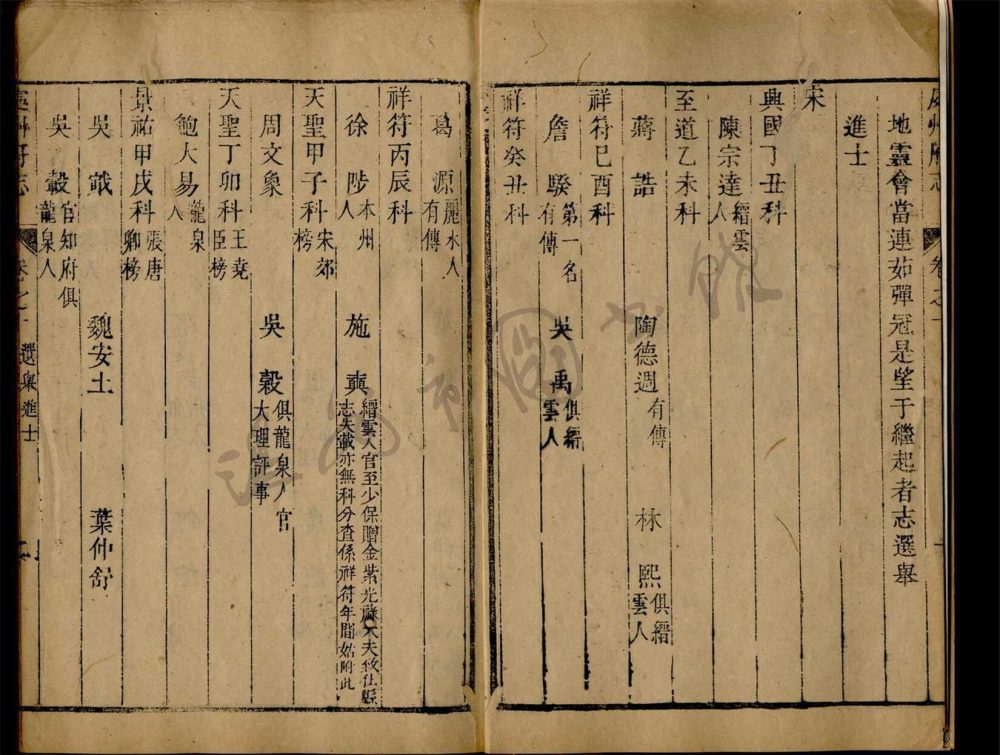 處州府志
卷之十
地靈會當連茹彈冠是望于繼起者志選舉
進士
宋
興國丁丑科
陳宗達縉雲人
至道乙未科
蔣誥 陶德週有傳 林熙俱縉雲人
祥符巳酉科
詹騤第一名有傳 吳禹俱縉雲人
祥符癸丑科
葛源麗水人有傳
祥符丙辰科
徐陟本州人 施奭縉雲人官至少保贈金紫光祿大夫致仕縣志失載亦無科分查係祥符年間姑附此
天聖甲子科宋郊榜
周文象 吳穀俱龍泉人官大理評事
天聖丁卯科王堯臣榜
鮑大易龍泉人
景祐甲戌科張唐卿榜
吳戩 魏安土 葉仲舒
吳轂官知府俱龍泉人
處州府志
卷之十 選舉進士